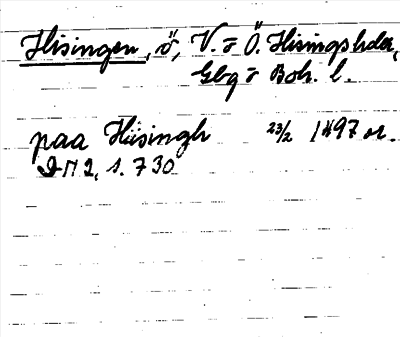 Hisingen, ö, V. o Ö. Hisings hdr,
Gbg o Boh. l.
paa Hiisingh 23/2 1497 or.
DN 2, s. 730